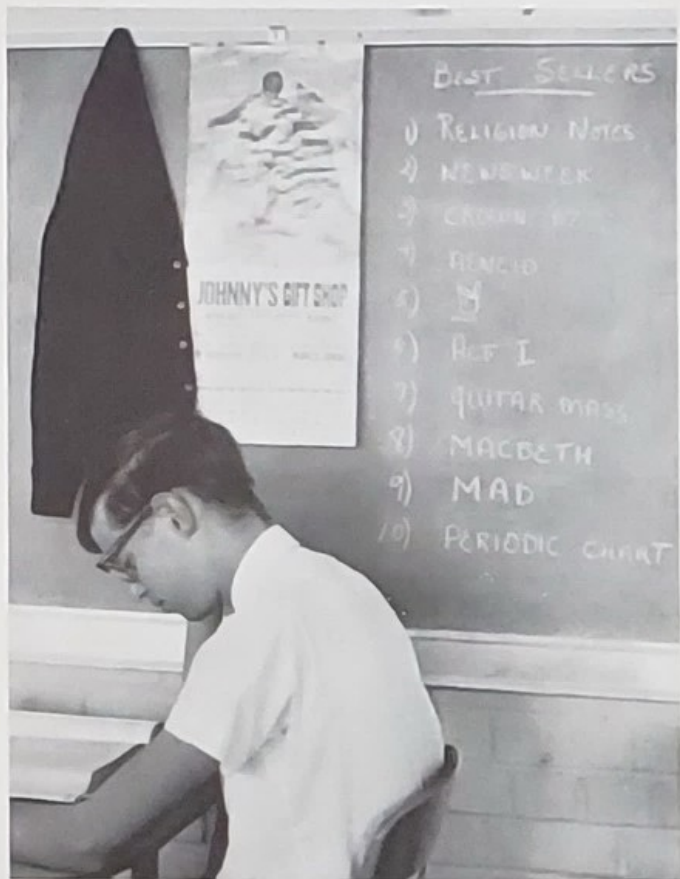 JOHNNY'S GIFT SHOP
BEST SELLERS
1) RELIGION NOTES
2) NEWSWEEK
3) CROWN
4)
5)
6) ACT I
7) GUITAR MASS
8) MACBETH
9) MAD
10) PERIODIC CHART